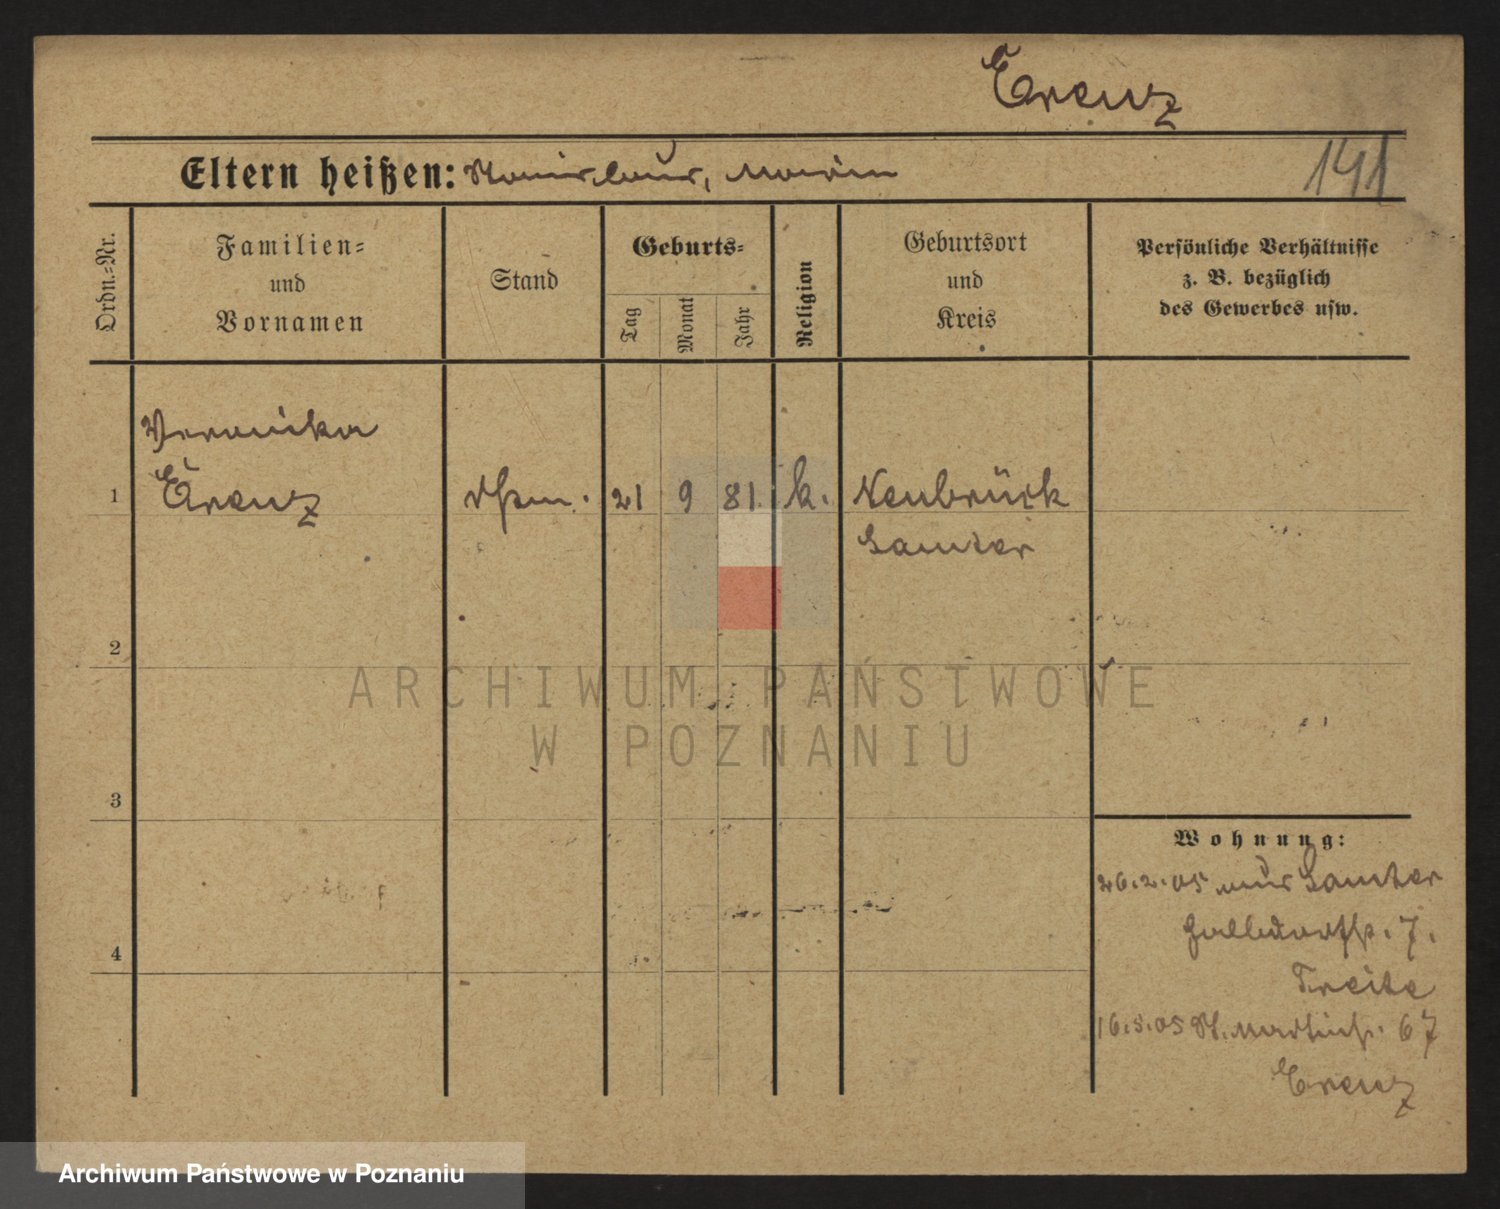 Erenz
Eltern heißen: Stanislaus, Maria
141
Ordn.=Nr.
Familien=
und
Vornamen
Stand
Geburts=
Tag
Monat
Jahr
Religion
Geburtsort
und
Kreis
Persönliche Verhältnisse
z. B. bezüglich
des Gewerbes usw.
Veronika
1 Erenz 21 9 81 k. Neubrück
Samter
2
3
4
Wohnung:
26.2.05 aus Samter
7.
16.5.05 St. Martinstr. 67
Erenz
ARCHIWUM PAŃSTWOWE
W POZNANIU
Archiwum Państwowe w Poznaniu